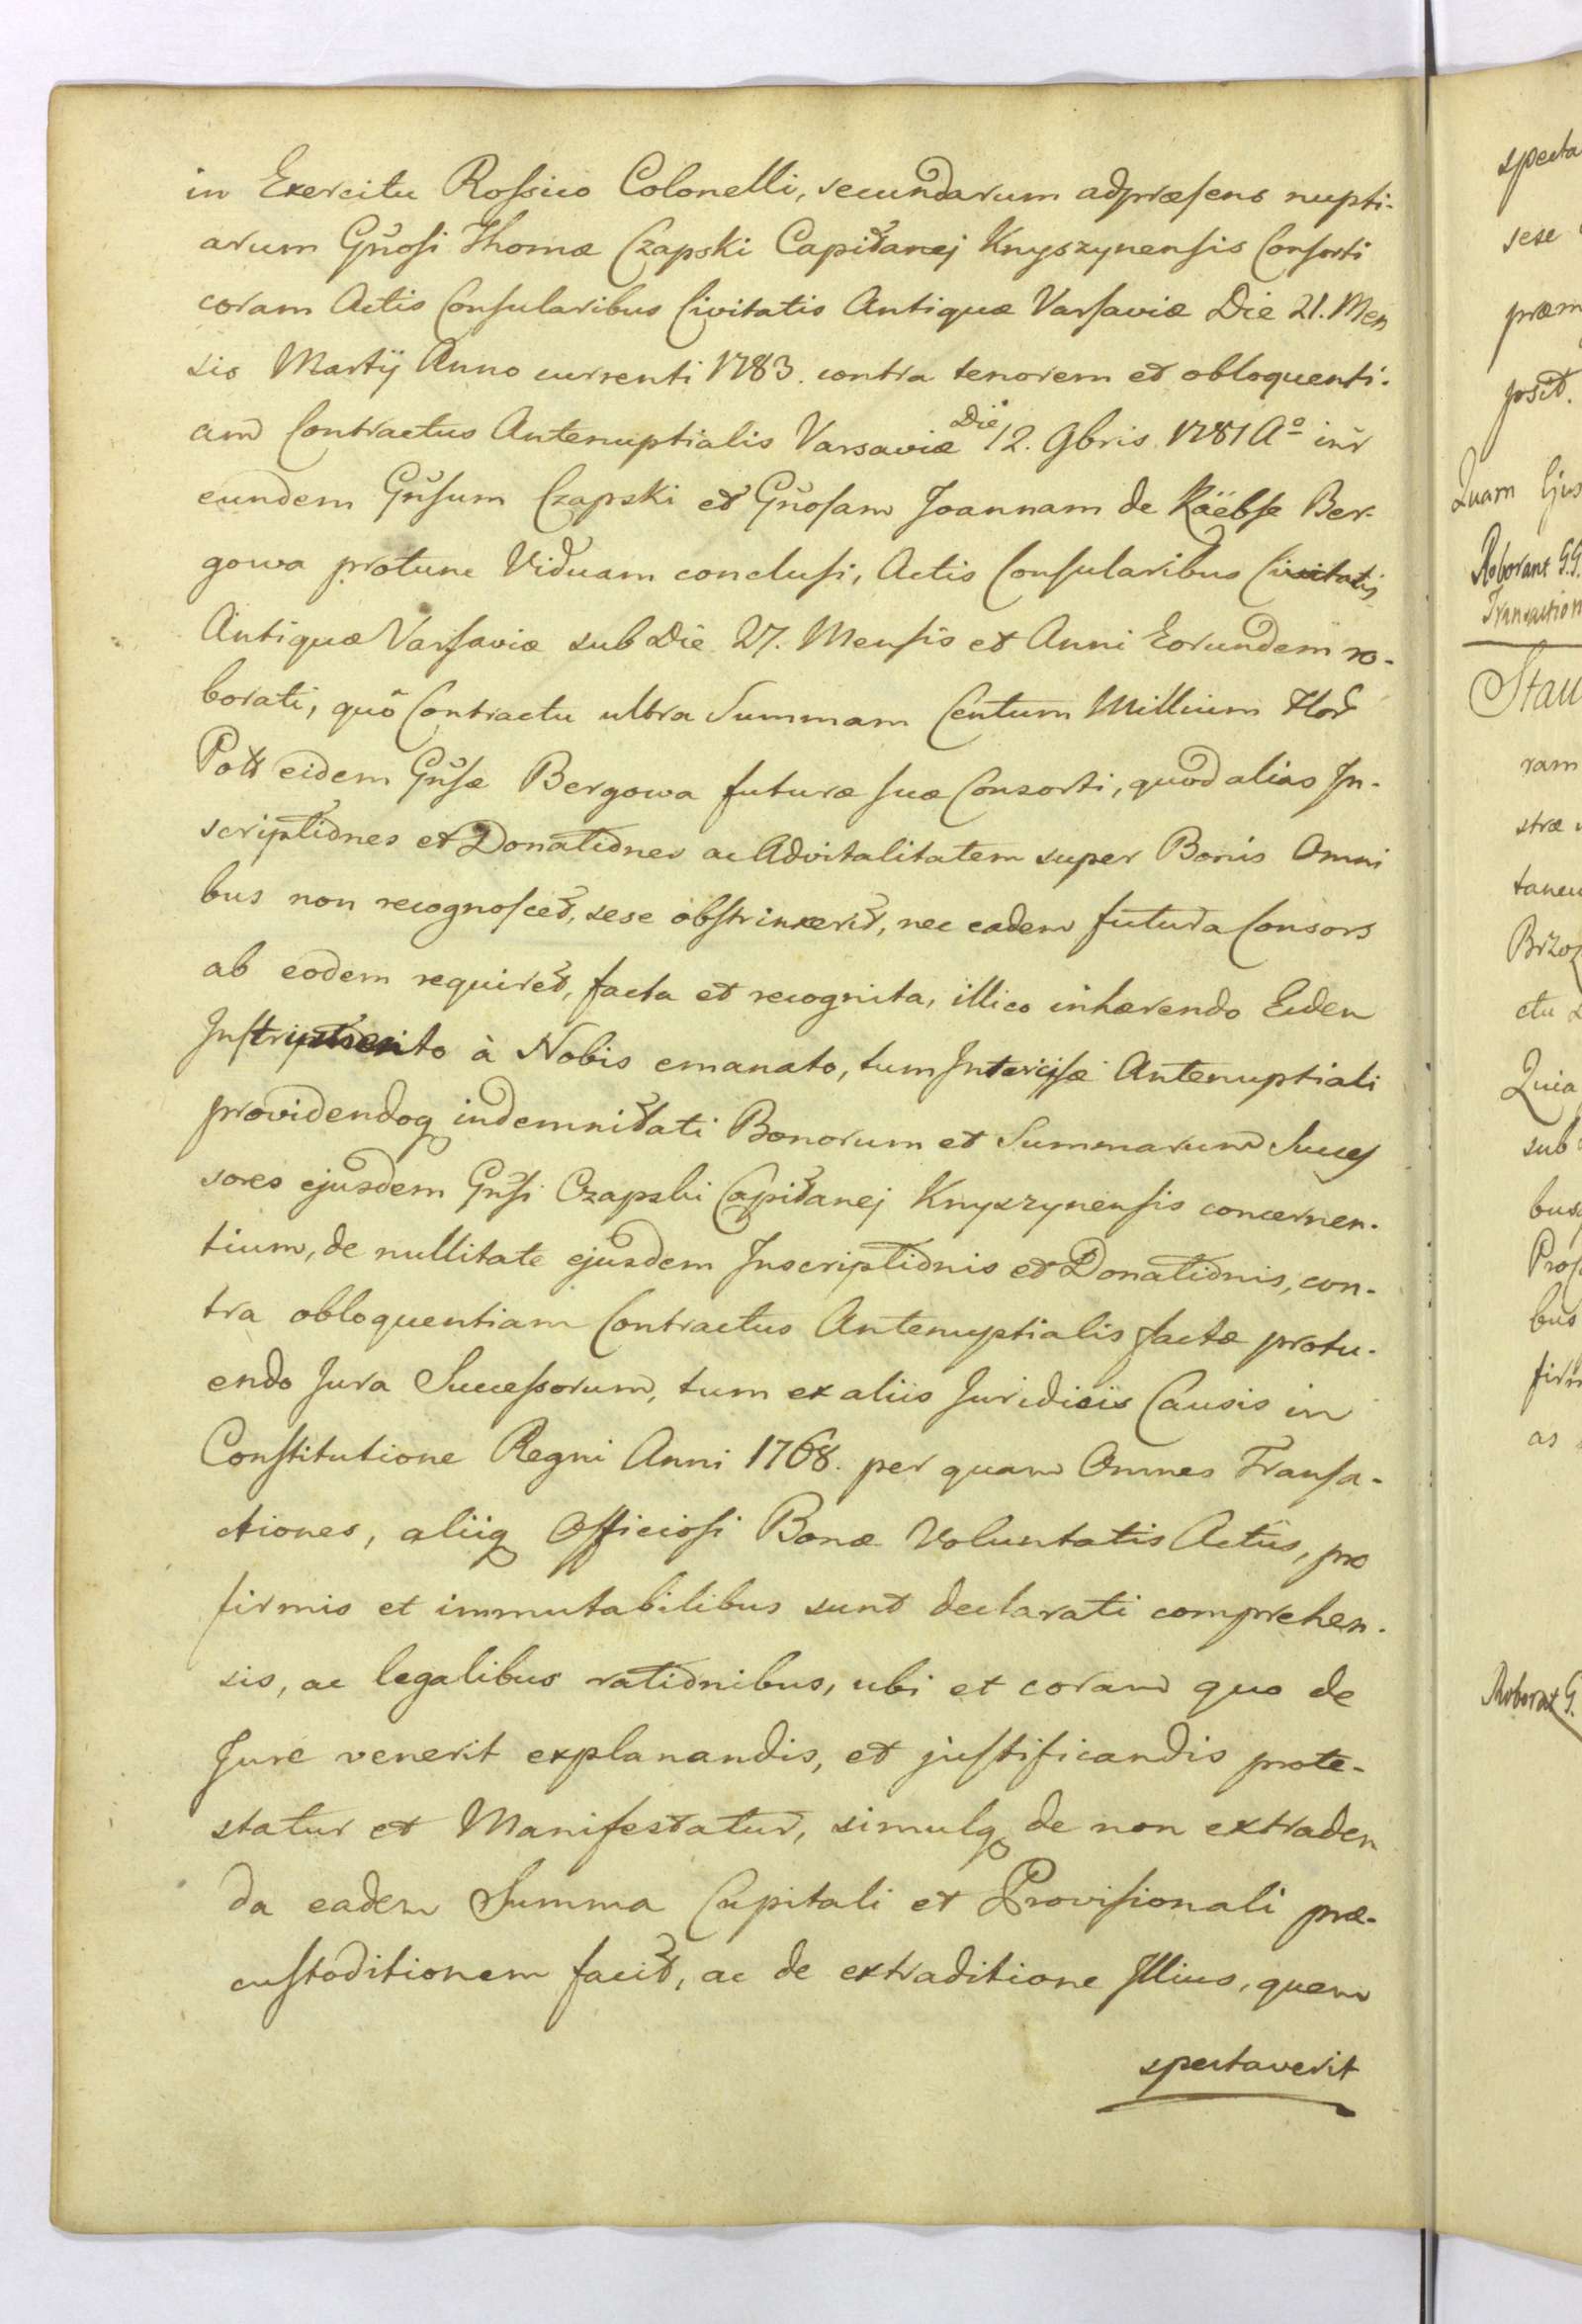 in Exercitu Rossico Colonelli, secundarum adpræsens nupti-
arum Gñosi Thomæ Czapski Capitanej Knyszynensis Consorti
coram Actis Consularibus Civitatis Antiquæ Varsaviæ Die 21. Men
sis Martij Anno currenti 1783. contra tenorem et obloquenti-
am Contractus Antenuptialis Varsaviæ Die 12. 9bris 1781 Aº inr
eundem Gñsum Czapski et Gñosam Joannam de Käebse Ber-
gowa protunc Viduam conclusi, Actis Consularibus Civitatis
Antiquæ Varsaviæ sub Die 27. Mensis et Anni Eorundem ro-
borati, quô Contractu ultra Summam Centum Millium Flor
Poll eidem Gñsæ Bergowa futuræ suæ Consorti, quod alias In-
scriptiones et Donationes ac Advitalitatem super Bonis Omni
bus non recognoscet, sese obstrinxerit, nec eadem futura Consors
ab eodem requiret, facta et recognita, illico inhærendo Eidem
à Nobis emanato, tum Intercisæ Antenuptiali
providendoq indemnitati Bonorum et Summarum Succes
sores ejusdem Gñsi Czapski Capitanej Knyszynensis concernen-
tium, de nullitate ejusdem Inscriptionis et Donationis, con-
tra obloquentiam Contractus Antenuptialis factæ protu-
endo Jura Successorum, tum ex aliis Juridicis Causis in
Constitutione Regni Anni 1768. per quam Omnes Transa-
ctiones, aliiq Officiosi Bonæ Voluntatis Actus, pro
firmis et immutabilibus sunt declarati comprehen-
sis, ac legalibus rationibus, ubi et coram quo de
Jure venerit explanandis, et justificandis prote-
statur et Manifestatur, simulq de non extraden
da eadem Summa Capitali et Provisionali præ-
custoditionem facit, ac de extraditione Illius, quem
spectaverit
specta
sese
præm
posit.
Quam Ejus
Roborant G.G.
Transaction
Stau
ram
stræ
taneu
Brzoz
ctu
Quia
sub
busq
Prof
bus
firm
as
Roborat G.